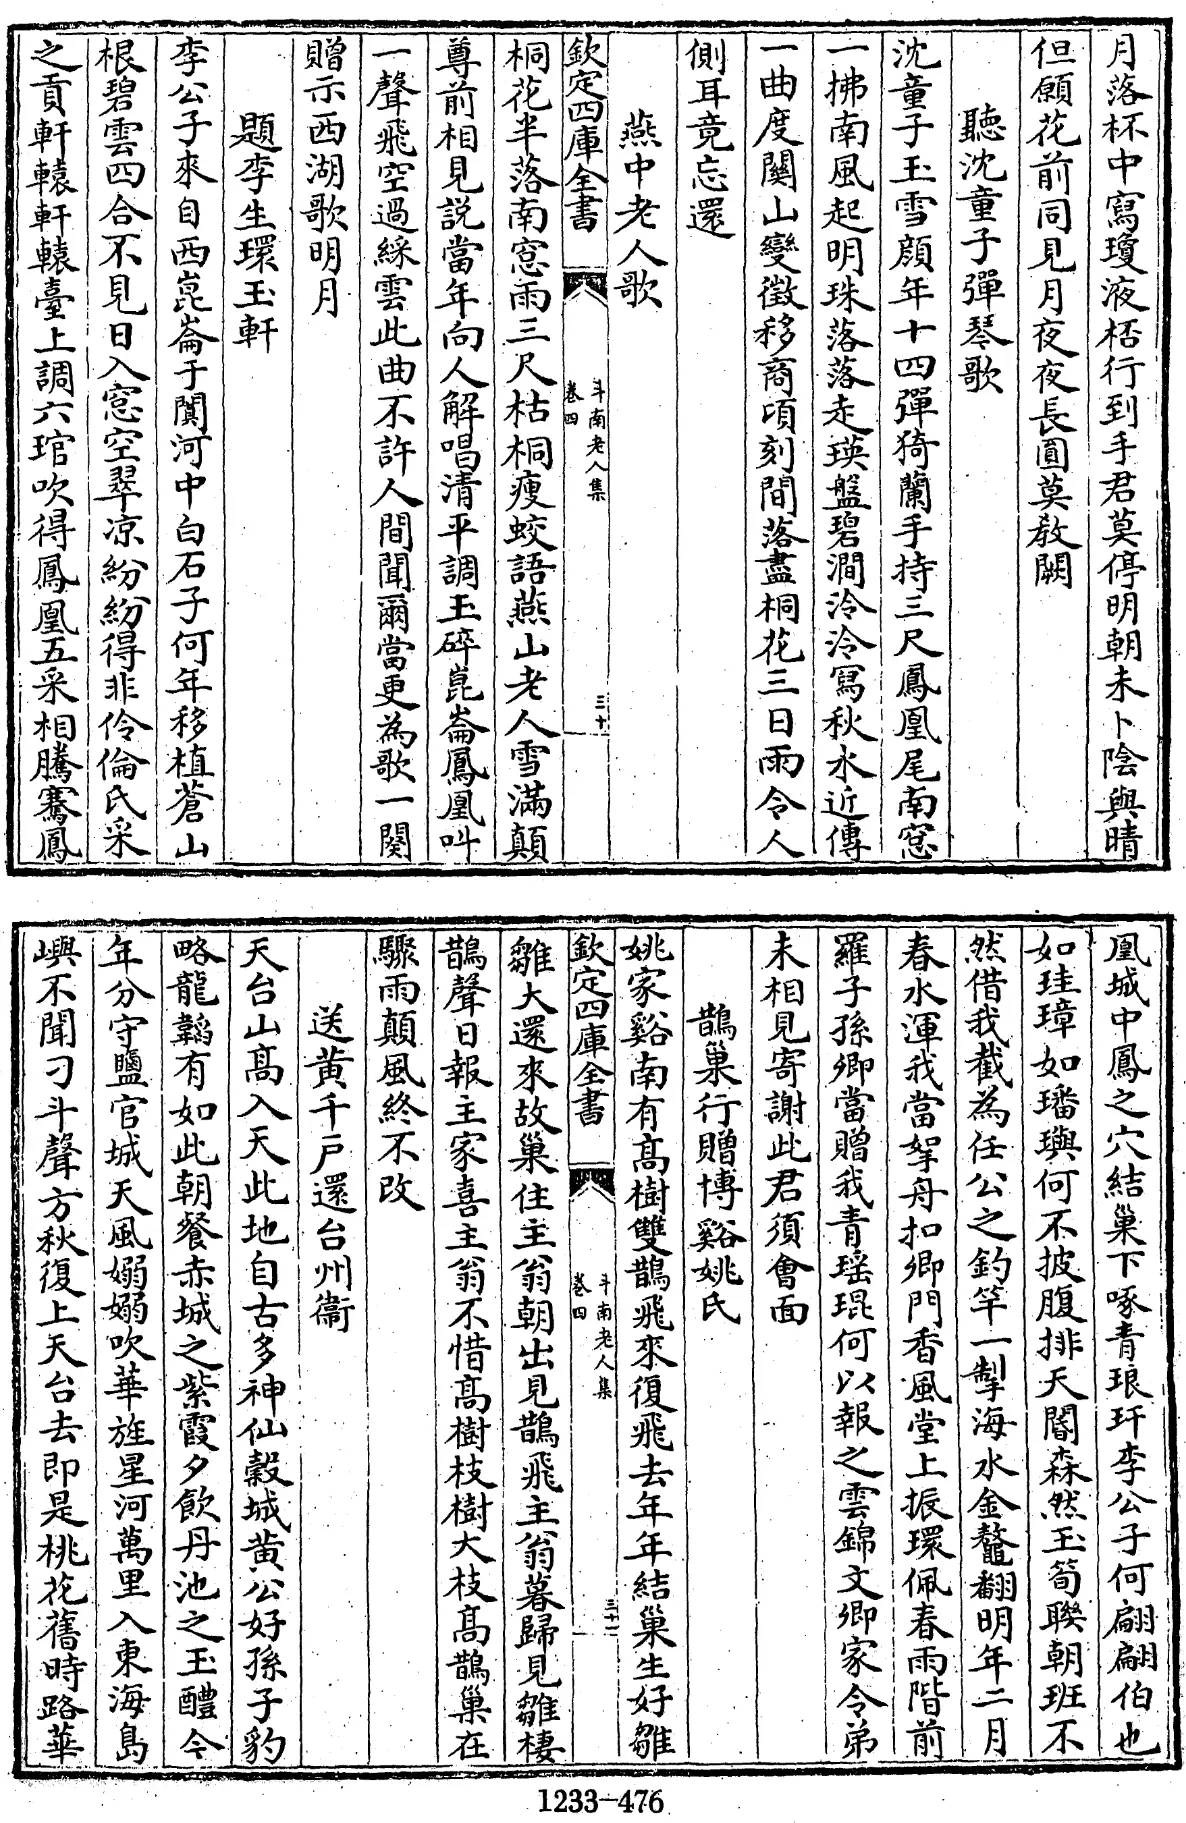 月落杯中寫瓊液桮行到手君莫停明朝未卜陰與晴
但願花前同見月夜夜長圓莫教闕
聽沈童子彈琴歌
沈童子玉雪顔年十四彈猗蘭手持三尺鳳凰尾南窓
一拂南風起明珠落落走瑛盤碧澗泠泠寫秋水近傳
一曲度關山變徵移商頃刻間落盡桐花三日雨令人
側耳竟忘還
燕中老人歌
欽定四庫全書
斗南老人集
卷四
三十
桐花半落南窓雨三尺枯桐瘦蛟語燕山老人雪滿顛
尊前相見説當年向人解唱清平調玉碎崑崙鳳凰叫
一聲飛空過綵雲此曲不許人間聞爾當更為歌一闋
贈示西湖歌明月
題李生環玉軒
李公子來自西崑崙于闐河中白石子何年移植蒼山
根碧雲四合不見日入窓空翠凉紛紛得非伶倫氏采
之貢軒轅軒轅臺上調六琯吹得鳳凰五采相騰騫鳳
凰城中鳳之穴結巢下啄青琅玕李公子何翩翩伯也
如珪璋如璠璵何不披腹排天閽森然玉筍聯朝班不
然借我截為任公之釣竿一掣海水金鼇翻明年二月
春水渾我當拏舟扣卿門香風堂上振環佩春雨階前
羅子孫卿當贈我青瑶琨何以報之雲錦文卿家令弟
未相見寄謝此君須會面
鵲巢行贈博谿姚氏
姚家谿南有髙樹雙鵲飛來復飛去年年結巢生好雛
欽定四庫全書
斗南老人集
卷四
三十一
雛大還來故巢住主翁朝出見鵲飛主翁暮歸見雛棲
鵲聲日報主家喜主翁不惜髙樹枝樹大枝髙鵲巢在
驟雨顛風終不改
送黄千戸還台州衞
天台山髙入天此地自古多神仙榖城黄公好孫子豹
略龍韜有如此朝餐赤城之紫霞夕飲丹池之玉醴今
年分守鹽官城天風嫋嫋吹華旌星河萬里入東海島
嶼不聞刁斗聲方秋復上天台去即是桃花舊時路華
1233-476